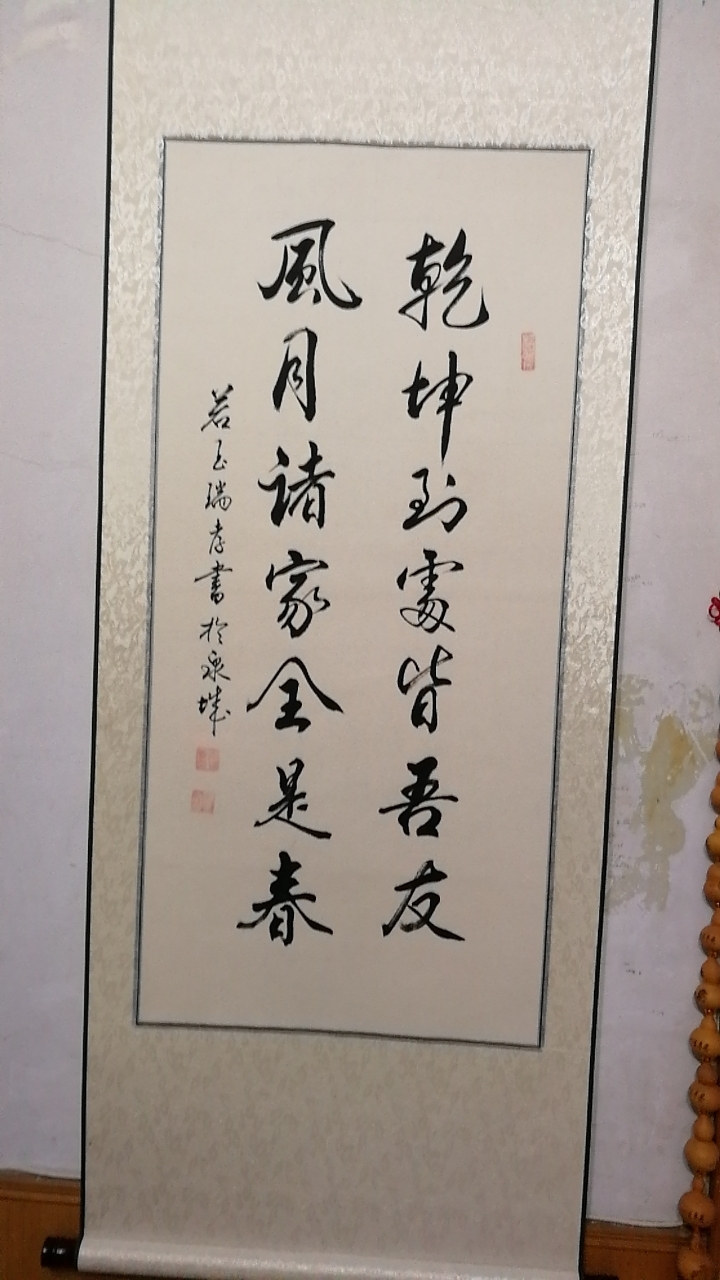 乾坤到處皆吾友
風月諸家全是春
若石瑞孝書於泉城